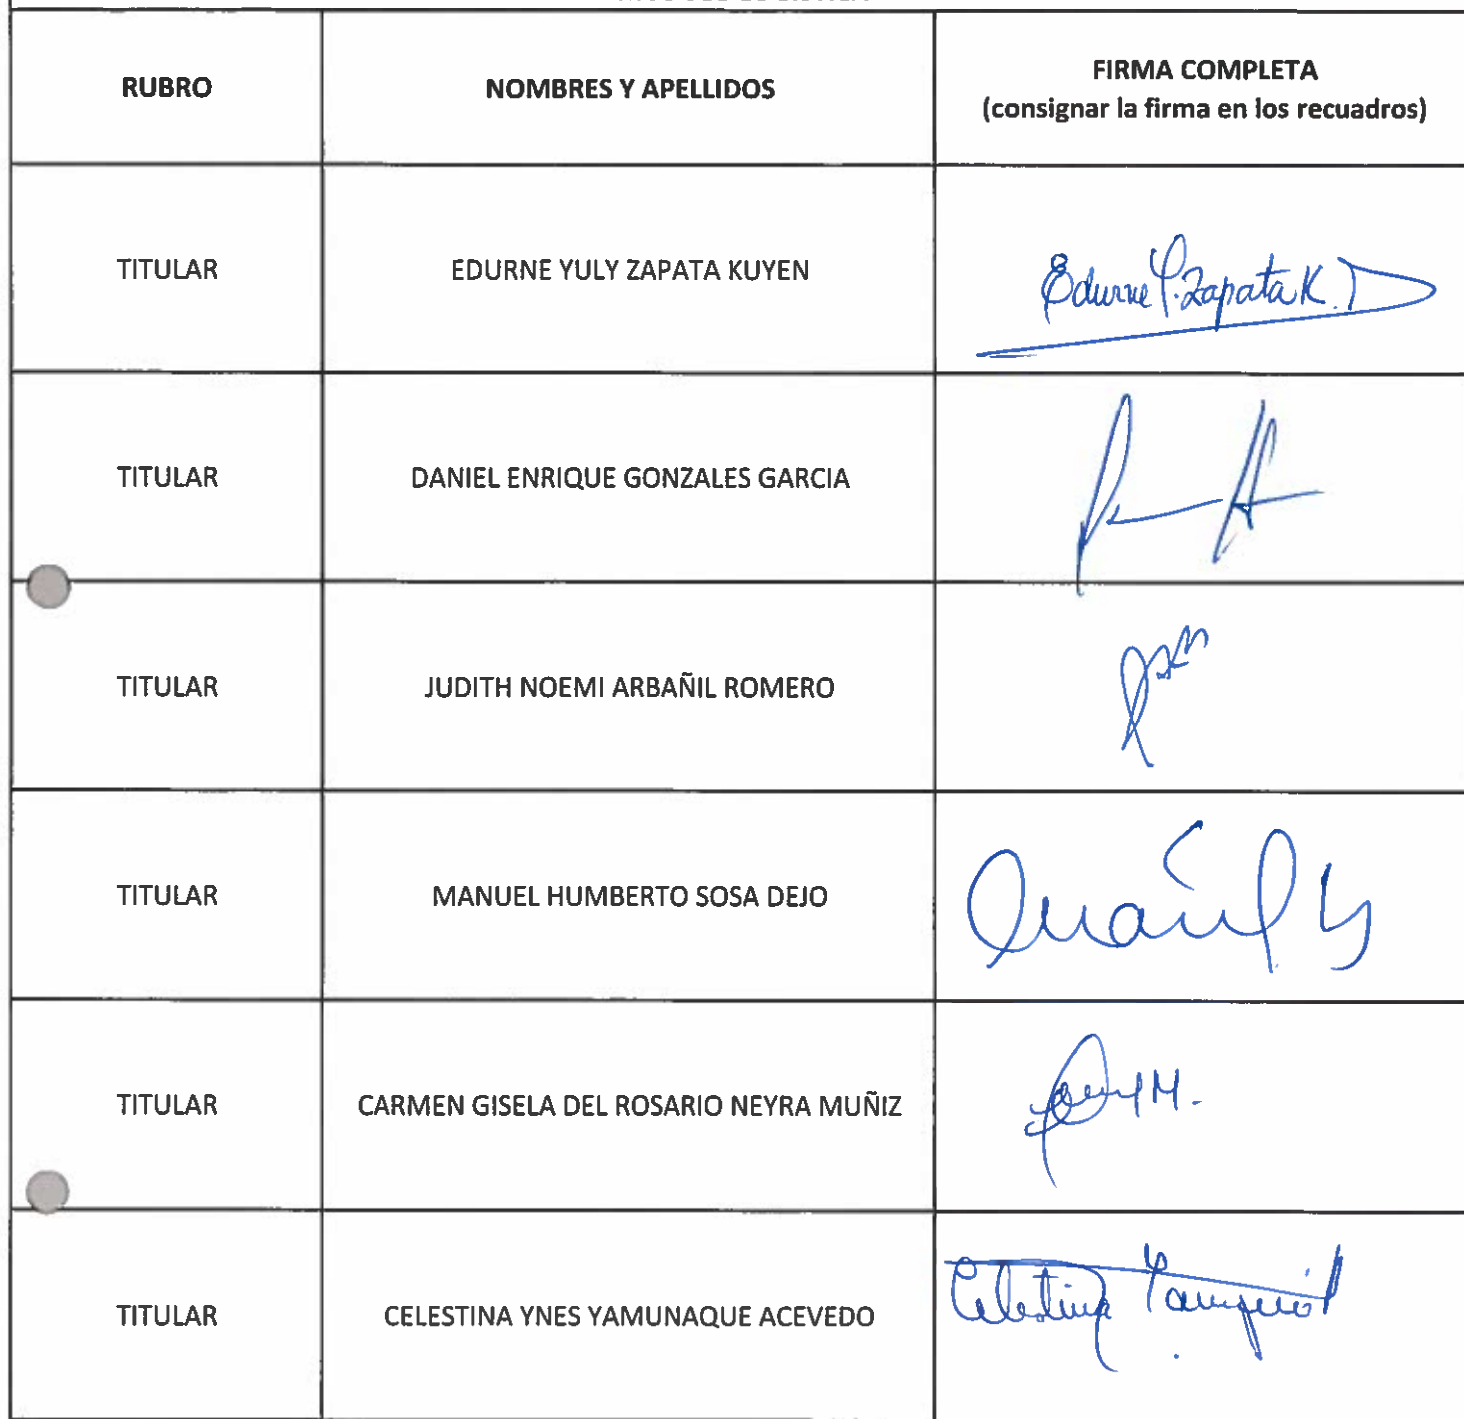 RUBRO
NOMBRES Y APELLIDOS
FIRMA COMPLETA
(consignar la firma en los recuadros)
TITULAR
EDURNE YULY ZAPATA KUYEN
Edurne Y. Zapata K.
TITULAR
DANIEL ENRIQUE GONZALES GARCIA
TITULAR
JUDITH NOEMI ARBAÑIL ROMERO
TITULAR
MANUEL HUMBERTO SOSA DEJO
TITULAR
CARMEN GISELA DEL ROSARIO NEYRA MUÑIZ
TITULAR
CELESTINA YNES YAMUNAQUE ACEVEDO
Celestina